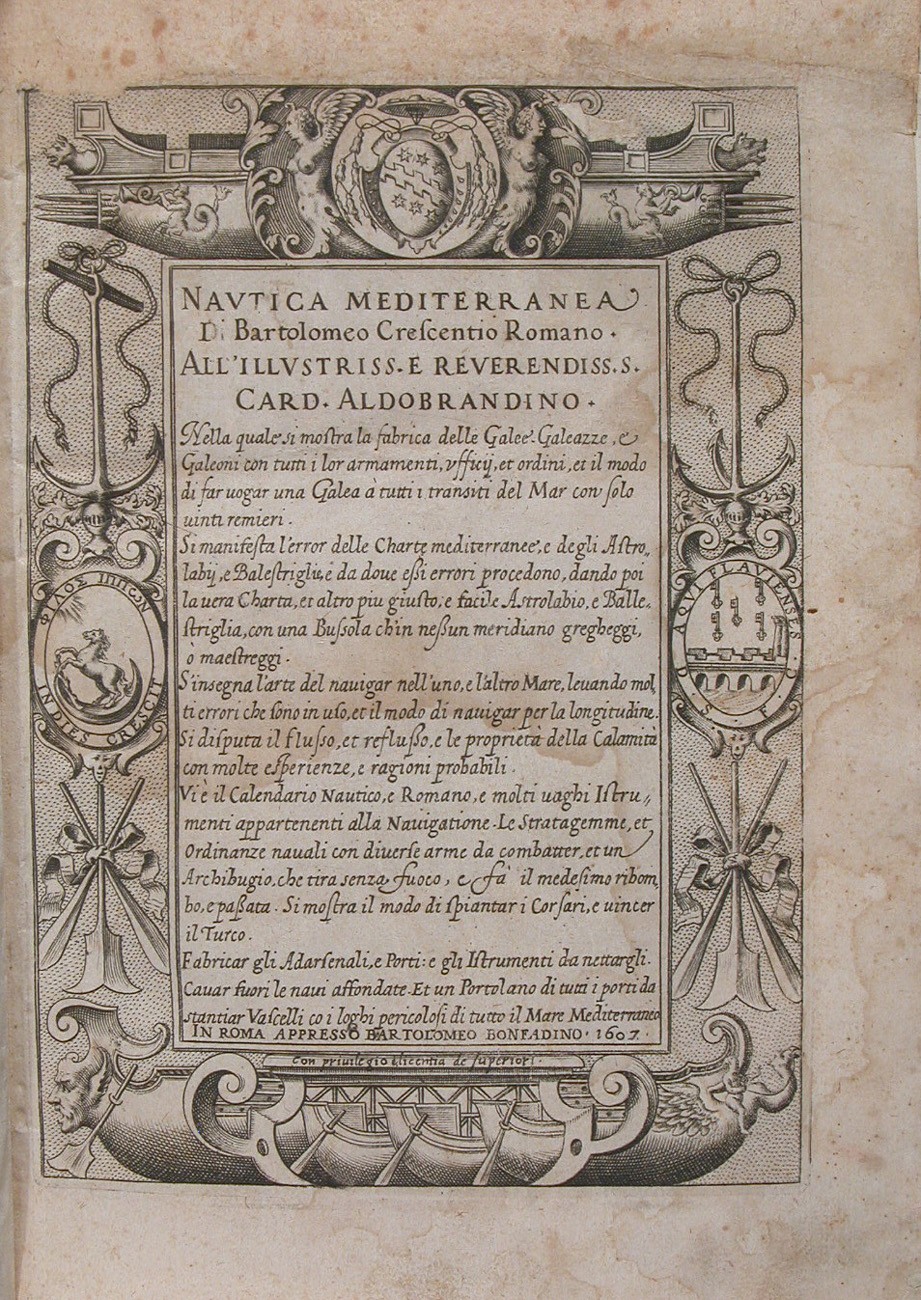 NAVTICA MEDITERRANEA
Di Bartolomeo Creſcentio Romano.
ALL'ILLVSTRISS. E REVERENDISS. S.
CARD. ALDOBRANDINO.
Nella quale si moſtra la fabrica delle Galee. Galeazze, e
Galeoni con tutti i lor armamenti, vfficij, et ordini, et il modo
di far uogar una Galea à tutti i transiti del Mar con ſolo
uinti remieri.
Si manifeſta l'error delle Charte mediterranee, e degli Aſtro,,
labij, e Baleſtriglie, e da doue eſsi errori procedono, dando poi
la uera Charta, et altro piu giuſto, e facile Aſtrolabio, e Balle,,
ſtriglia, con una Buſsola ch'in neſsun meridiano gregheggi,
ò maeſtreggi.
S'insegna l'arte del nauigar nell'uno, e l'altro Mare, leuando mol,,
ti errori che ſono in uſo, et il modo di nauigar per la longitudine.
Si diſputa il fluſso, et refluſso, e le proprietà della Calamita
con molte eſperienze, e ragioni probabili.
Vi è il Calendario Nautico, e Romano, e molti uaghi Iſtru,,
menti appartenenti alla Nauigatione. Le Stratagemme, et
Ordinanze nauali con diuerſe arme da combatter, et un
Archibugio, che tira senza fuoco, e fà il medeſimo ribom,,
bo, e paſsata. Si moſtra il modo di ſpiantar i Corſari, e uincer
il Turco.
Fabricar gli Adarſenali, e Porti: e gli Iſtrumenti da nettargli.
Cauar fuori le naui affondate. Et un Portolano di tutti i porti da
ſtantiar Vaſcelli co i loghi pericoloſi di tutto il Mare Mediterraneo
IN ROMA APPRESSO BARTOLOMEO BONFADINO. 1607.
Con priuilegio e licentia de ſuperiori.
ΦΙΛΟΣ ΙΠΠΩΝ
IN DIES CRESCIT
AQVIFLAVIENSES